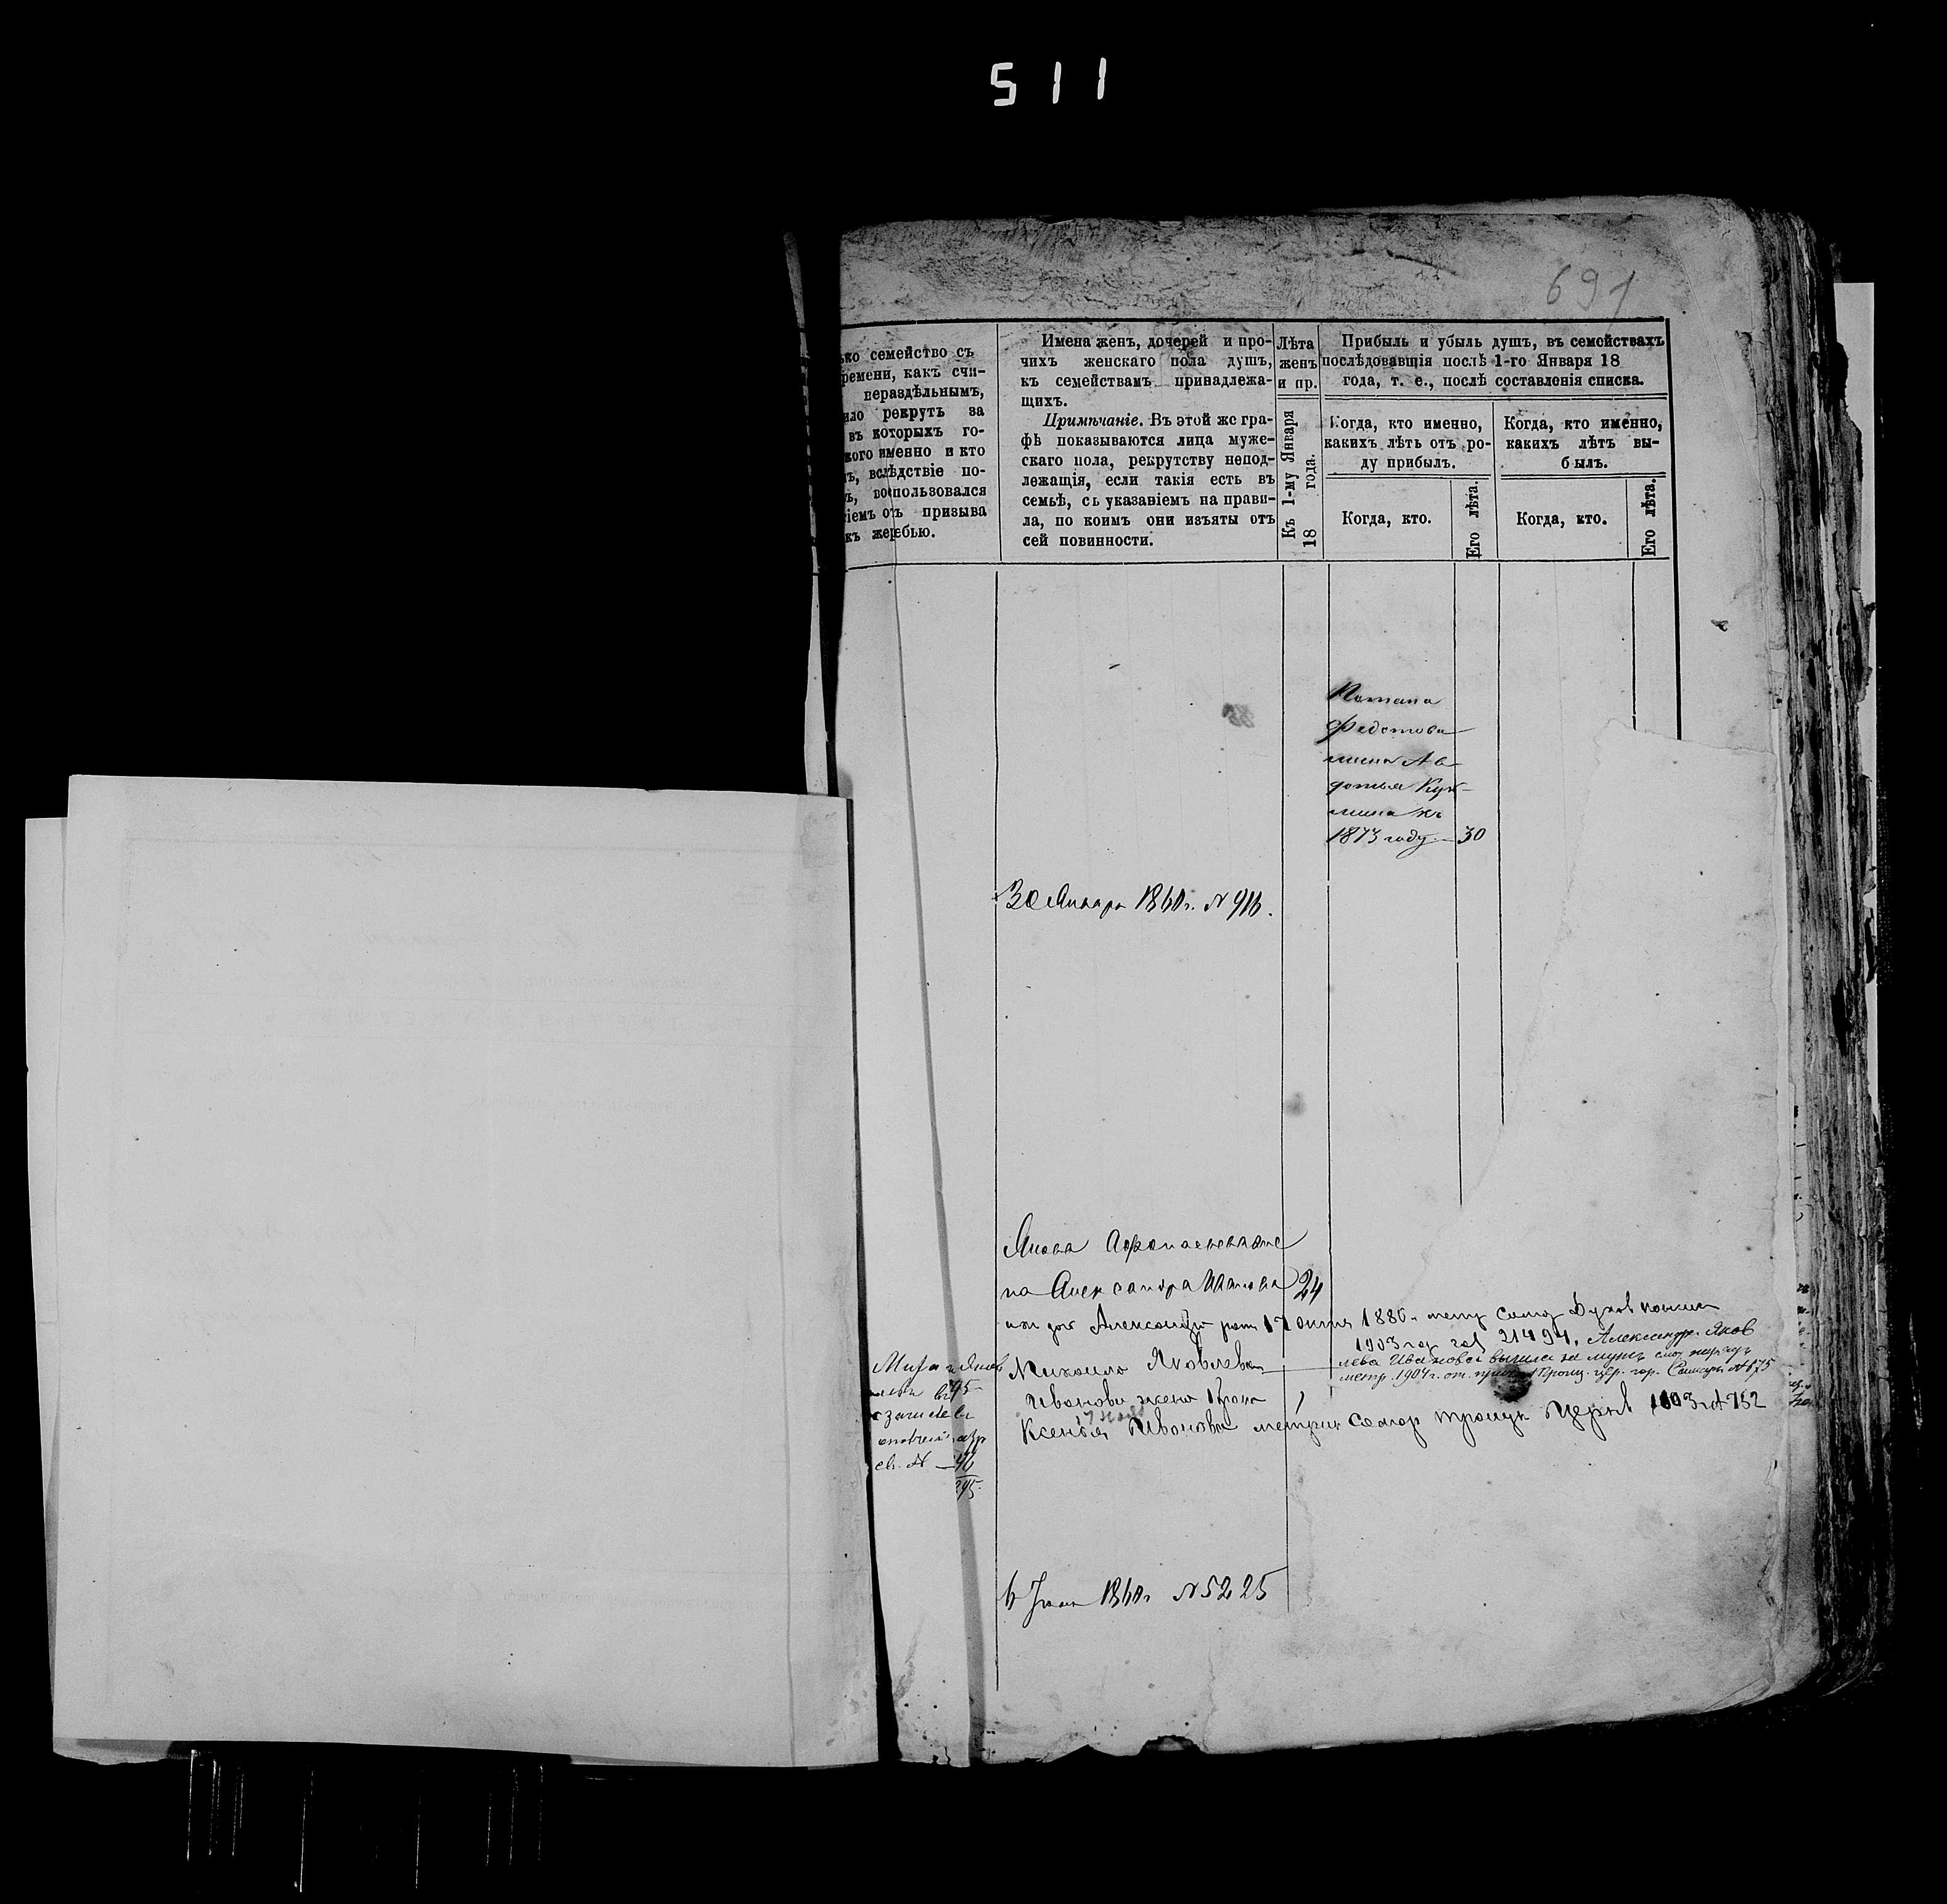 511
691
ько семейство съ
ремени, какъ счи-
нераздѣльнымъ,
ило рекрутъ за
въ которыхъ го-
кого именно и кто
ъ, вслѣдствіе по-
ъ, воспользовался
ніемъ отъ призыва
къ жеребью.
Имена женъ, дочерей и про-
чихъ женскаго пола душъ,
къ семействамъ принадлежа-
щихъ.
Примѣчаніе. Въ этой же гра-
фѣ показываются лица муже-
скаго пола, рекрутству непод-
лежащія, если такія есть въ
семьѣ, съ указаніемъ на прави-
ла, по коимъ они изъяты отъ
сей повинности.
Лѣта
женъ
и пр.
Къ 1-му Января
18 года.
Прибыль и убыль душъ, въ семействахъ
послѣдовавшія послѣ 1-го Января 18
года, т. е., послѣ составленія списка.
Когда, кто именно,
какихъ лѣтъ отъ ро-
ду прибылъ.
Когда, кто.
Его лѣта.
Когда, кто именно,
какихъ лѣтъ вы-
былъ.
Когда, кто.
Его лѣта.
Потапа
Федотова
жена Ав-
дотья Куз-
мина къ
1873 году 30
30 Января 1860 г. N 916.
Якова Афанасьева же
на Александра Иванова 24
их доч Александра 17 1880 г. Самар Духов
1903 год 21494. Александра Яков
лева Иванова вышла за мужъ
метр. 1904 г. от Троиц. цер. гор. Самары N 175
Михаила Яковлева
Иванова жена
Ксенья Иванова метрик Самар Троицк Церкв 1903 N 752
95
св. N 46
295
6 1860 г. N 5225